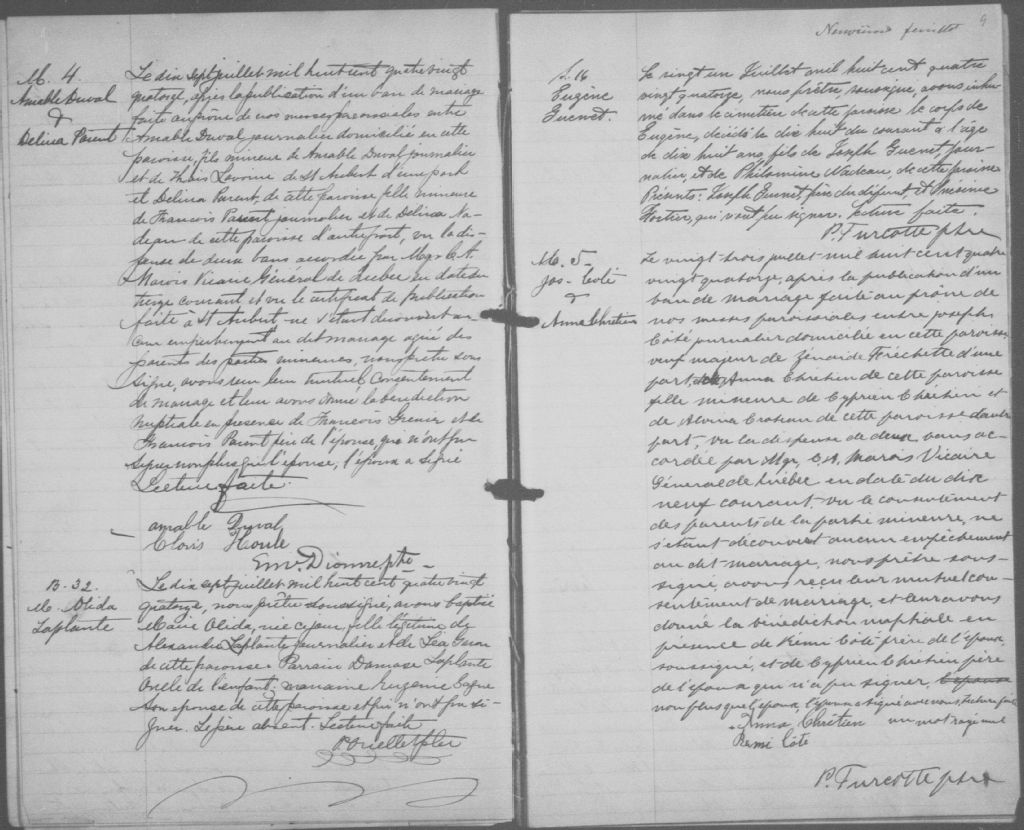 M. 4.
Amable Duval
&
Delina Parent
Le dix sept juillet mil huit cent quatre vingt
quatorze, après la publication d'un ban de mariage
faite au prône de nos messes paroissiales entre
Amable Duval journalier domicilié en cette
paroisse, fils mineur de Amable Duval journalier
et de Lavoine de St Aubert d'une part
et Delina Parent, de cette paroisse fille mineure
de Francois Parent journalier et de Delina Na-
deau de cette paroisse d'autre part, vu la dis-
pense de deux bans accordée par Mgr C. A.
Marois Vicaire Général de Quebec en date du
treize courant et vu le certificat de publication
faite à St Aubert ne s'étant découvert au-
cun empêchement au dit mariage agréé des
parents des parties mineures, nous prêtre sous
signé, avons reçu leur mutuel consentement
de mariage et leur avons donné la bénédiction
nuptiale en présence de Francois Grenier et de
Francois Parent père de l'épouse, qui n'ont pu
signer non plus que l'épouse, l'époux a signé
Lecture faite.
amable Duval
Clovis Houle
Dionne ptre
B. 32
M. Olida
Laplante
Le dix sept juillet mil huit cent quatre vingt
quatorze, nous prêtre soussigné, avons baptisé
Marie Olida, née ce jour, fille légitime de
Alexandre Laplante journalier et de Léa
de cette paroisse. Parrain Damase Laplante
Oncle de l'enfant. marraine Eugénie Gagné
son épouse de cette paroisse et qui n'ont pu si-
gner. Le père absent. Lecture faite
ptre
Neuvième feuillet
9
S. 16
Eugène
Guenet.
Le vingt un Juillet mil huit cent quatre
vingt quatorze, nous prêtre, soussigné, avons inhu-
mé dans le cimetière de cette paroisse le corps de
Eugène, décédé le dix huit du courant à l'âge
de dix huit ans, fils de Joseph Guenet, jour-
nalier, et de Philomène Nadeau, de cette paroisse
Présents: Joseph Guenet, père du défunt et Onésime
Fortier, qui n'ont pu signer. Lecture faite.
P. Turcotte ptre
M. 5
Jos. Coté
&
Anna Chretien
Le vingt-trois juillet mil huit cent quatre
vingt quatorze, après la publication d'un
ban de mariage faite au prône de
nos messes paroissiales entre Joseph
Côté journalier domicilié en cette paroisse
veuf majeur de Zénaïde Fréchette d'une
part, et Anna Chretien de cette paroisse
fille mineure de Cyprien Chrétien et
de Alvina Croteau de cette paroisse d'autre
part, vu la dispense de deux bans ac-
cordée par Mgr. C. A. Marois Vicaire
Général de Québec en date du dix
neuf courant, vu le consentement
des parents de la partie mineure, ne
s'étant découvert aucun empêchement
au dit mariage, nous prêtre sous-
signé, avons reçu leur mutuel con-
sentement de mariage, et leur avons
donné la bénédiction nuptiale en
présence de Rémi Côté frère de l'époux
soussigné, et de Cyprien Chretien père
de l'épouse qui n'a pu signer,
non plus que l'époux, l'épouse a signé avec nous. Lecture faite
Anna Chretien un mot rayé nul
Remi Côté
P. Turcotte ptre